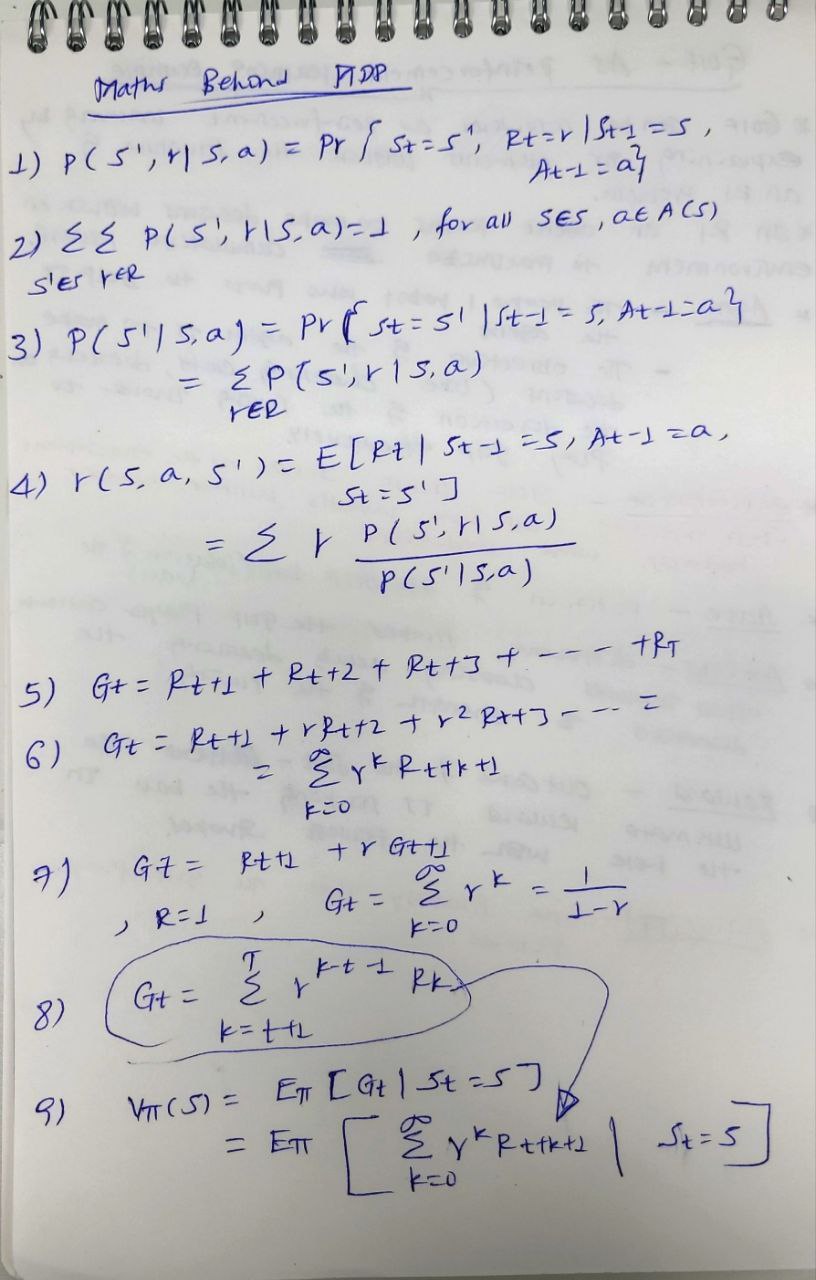 Maths Behind MDP
1) P(s', r|s, a) = Pr { St = s', Rt = r | St-1 = s,
At-1 = a}
2) Σ Σ P(s', r|s, a) = 1 , for all s∈S, a∈A(S)
s'∈S r∈R
3) P(s'|s, a) = Pr { St = s' | St-1 = s, At-1 = a}
= Σ P(s', r|s, a)
r∈R
4) r(s, a, s') = E[Rt | St-1 = s, At-1 = a,
St = s']
= Σ r P(s', r|s, a)
P(s'|s, a)
5) Gt = Rt+1 + Rt+2 + Rt+3 + --- +RT
6) Gt = Rt+1 + γRt+2 + γ² Rt+3 --- =
= ∞ Σ γᵏ Rt+k+1
k=0
7) Gt = Rt+1 + γ Gt+1
, R=1 , Gt = ∞ Σ γᵏ = 1
k=0 1-γ
8) Gt = T Σ γ k-t-1 Rk
k=t+1
9) Vπ(S) = Eπ [Gt | St = s]
= Eπ [ ∞ Σ γᵏ Rt+k+1 | St = s ]
k=0